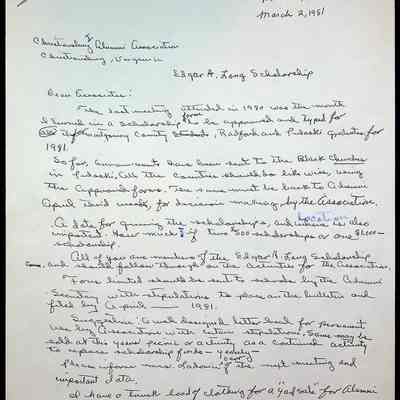 March 2, 1981
Christiansburg Alumni Association
Christiansburg, Virginia
Edgar A. Long Scholarship
Dear Associates:
The last meeting attended in 1980 was the month
I turned in a scholarship form to be approved and typed for
all the Montgomery County Students, Radford and Pulaski graduates for
1981.
So far, announcements have been sent to the Black Churches
in Pulaski, all the counties should be likewise, using
the approved form. The same must be back to Alumni
April third week, for decision making by the Association.
A date for giving the scholarships, and where is also
location
important. How much? if two 500 scholarships or one $1,000—
scholarship.
All of you are members of the Edgar A. Long Scholarship
Comm. and should follow through on the activities for the Association.
Forms should be sent to schools by the Alumni
Secretary with stipulations to place on the bulletin and
filed by April 1981.
Suggestion: a well designed letter head for permanent
use by Association with certain stipulations. Some may be
sold at this years' picnic or activity as a continued activity
to replace scholarship funds— yearly—
Please inform Mrs. of the next meeting and
important data.
I have a trunk load of clothing for a "yard sale" for Alumni